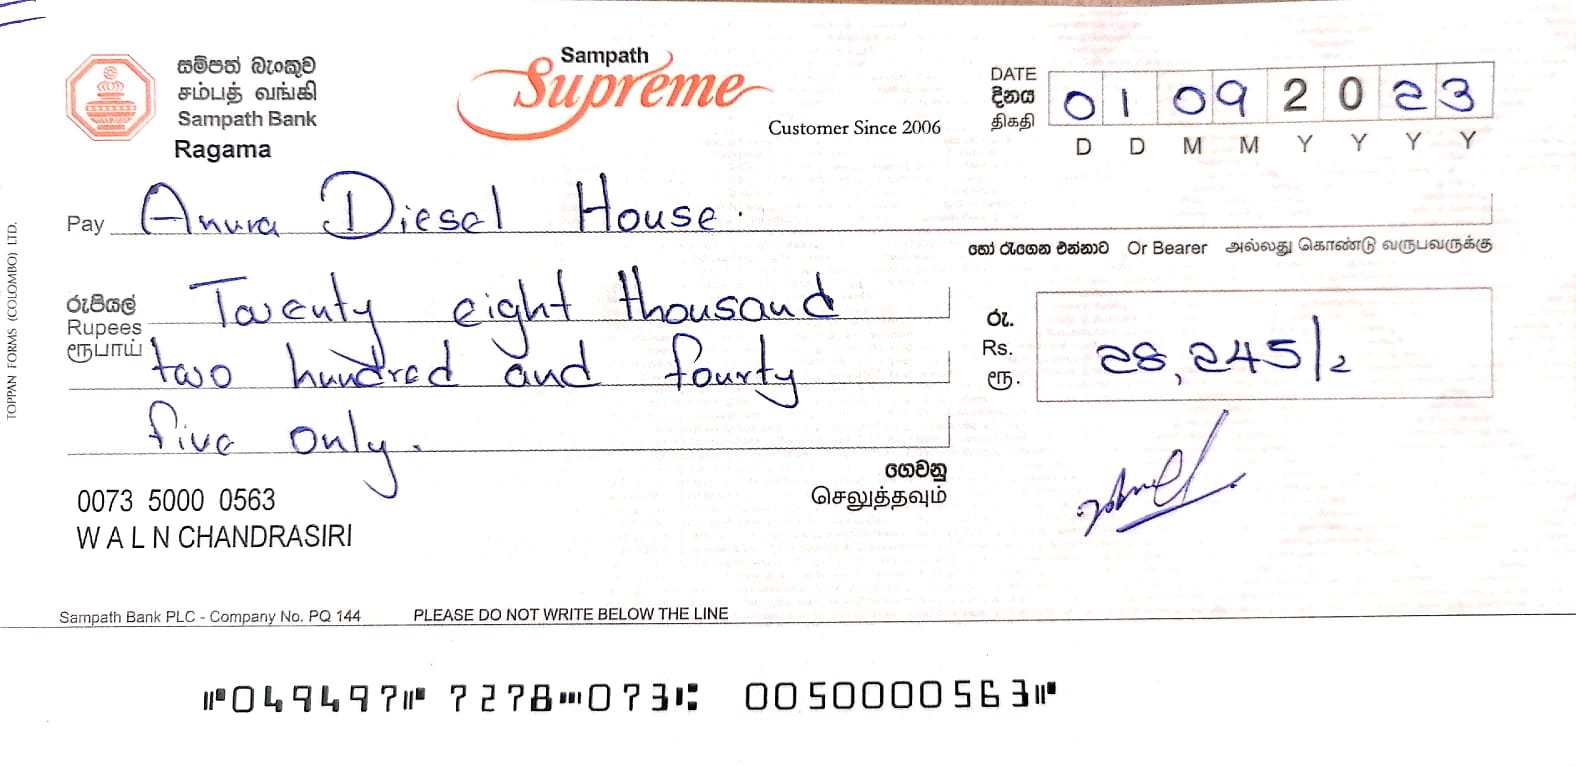 සම්පත් බැංකුව
சம்பத் வங்கி
Sampath Bank
Ragama
Sampath
Supreme
Customer Since 2006
DATE
දිනය
திகதி
01 09 2023
D D M M Y Y Y Y
Pay Anura Diesel House.
හෝ රැගෙන එන්නාට Or Bearer அல்லது கொண்டு வருபவருக்கு
රුපියල්
Rupees
ரூபாய்
Twenty eight thousand
two hundred and fourty
five only.
රු.
Rs.
ரூ.
28,245/2
ගෙවනු
செலுத்தவும்
0073 5000 0563
W A L N CHANDRASIRI
Sampath Bank PLC - Company No. PQ 144 PLEASE DO NOT WRITE BELOW THE LINE
⑈049497⑈ 7278⑉073⑆ 0050000563⑈
TOPPAN FORMS (COLOMBO) LTD.